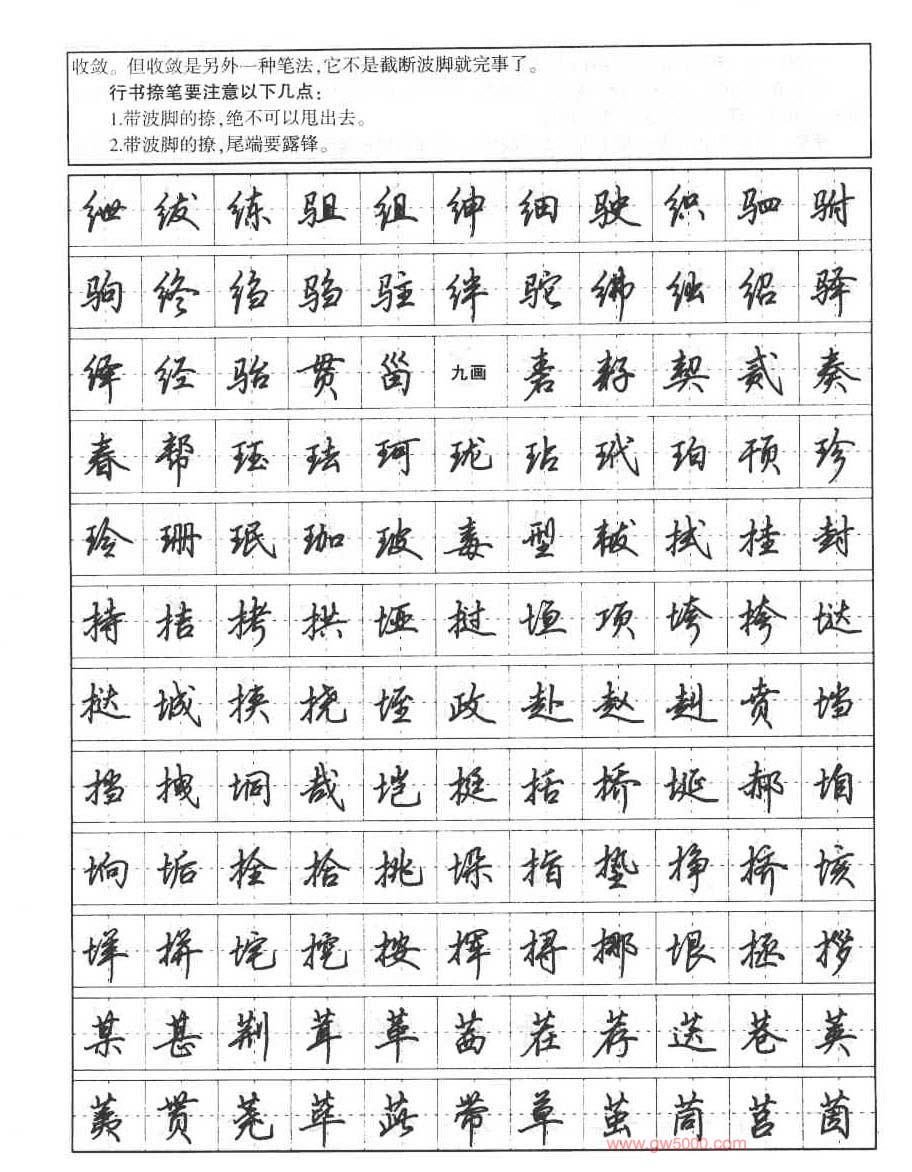 收敛。但收敛是另外一种笔法,它不是截断波脚就完事了。
行书捺笔要注意以下几点:
1.带波脚的捺,绝不可以甩出去。
2.带波脚的撩,尾端要露锋。
绁 绂 练 驵 组 绅 细 驶 织 驷 驸
驹 终 绉 驺 驻 绊 驼 绋 绌 绍 驿
绎 经 骀 贯 甾 九画 砉 耔 契 贰 奏
春 帮 珏 珐 珂 珑 玷 玳 珀 顸 珍
玲 珊 珉 珈 玻 毒 型 拭 挂 封
持 拮 拷 拱 垭 挝 垣 项 垮 挎 垯
挞 城 挟 挠 垤 政 赴 赵 赳 贲 垱
挡 拽 垌 哉 垲 挺 括 挢 埏 郝 垍
垧 垢 拴 拾 挑 垛 指 垫 挣 挤 垓
垟 拼 垞 挖 按 挥 挦 挪 垠 拯 拶
某 甚 荆 茸 革 茜 茬 荐 荙 巷 荚
荑 贳 荛 荜 茈 带 草 茧 茼 莒 茵
www.gw5000.com